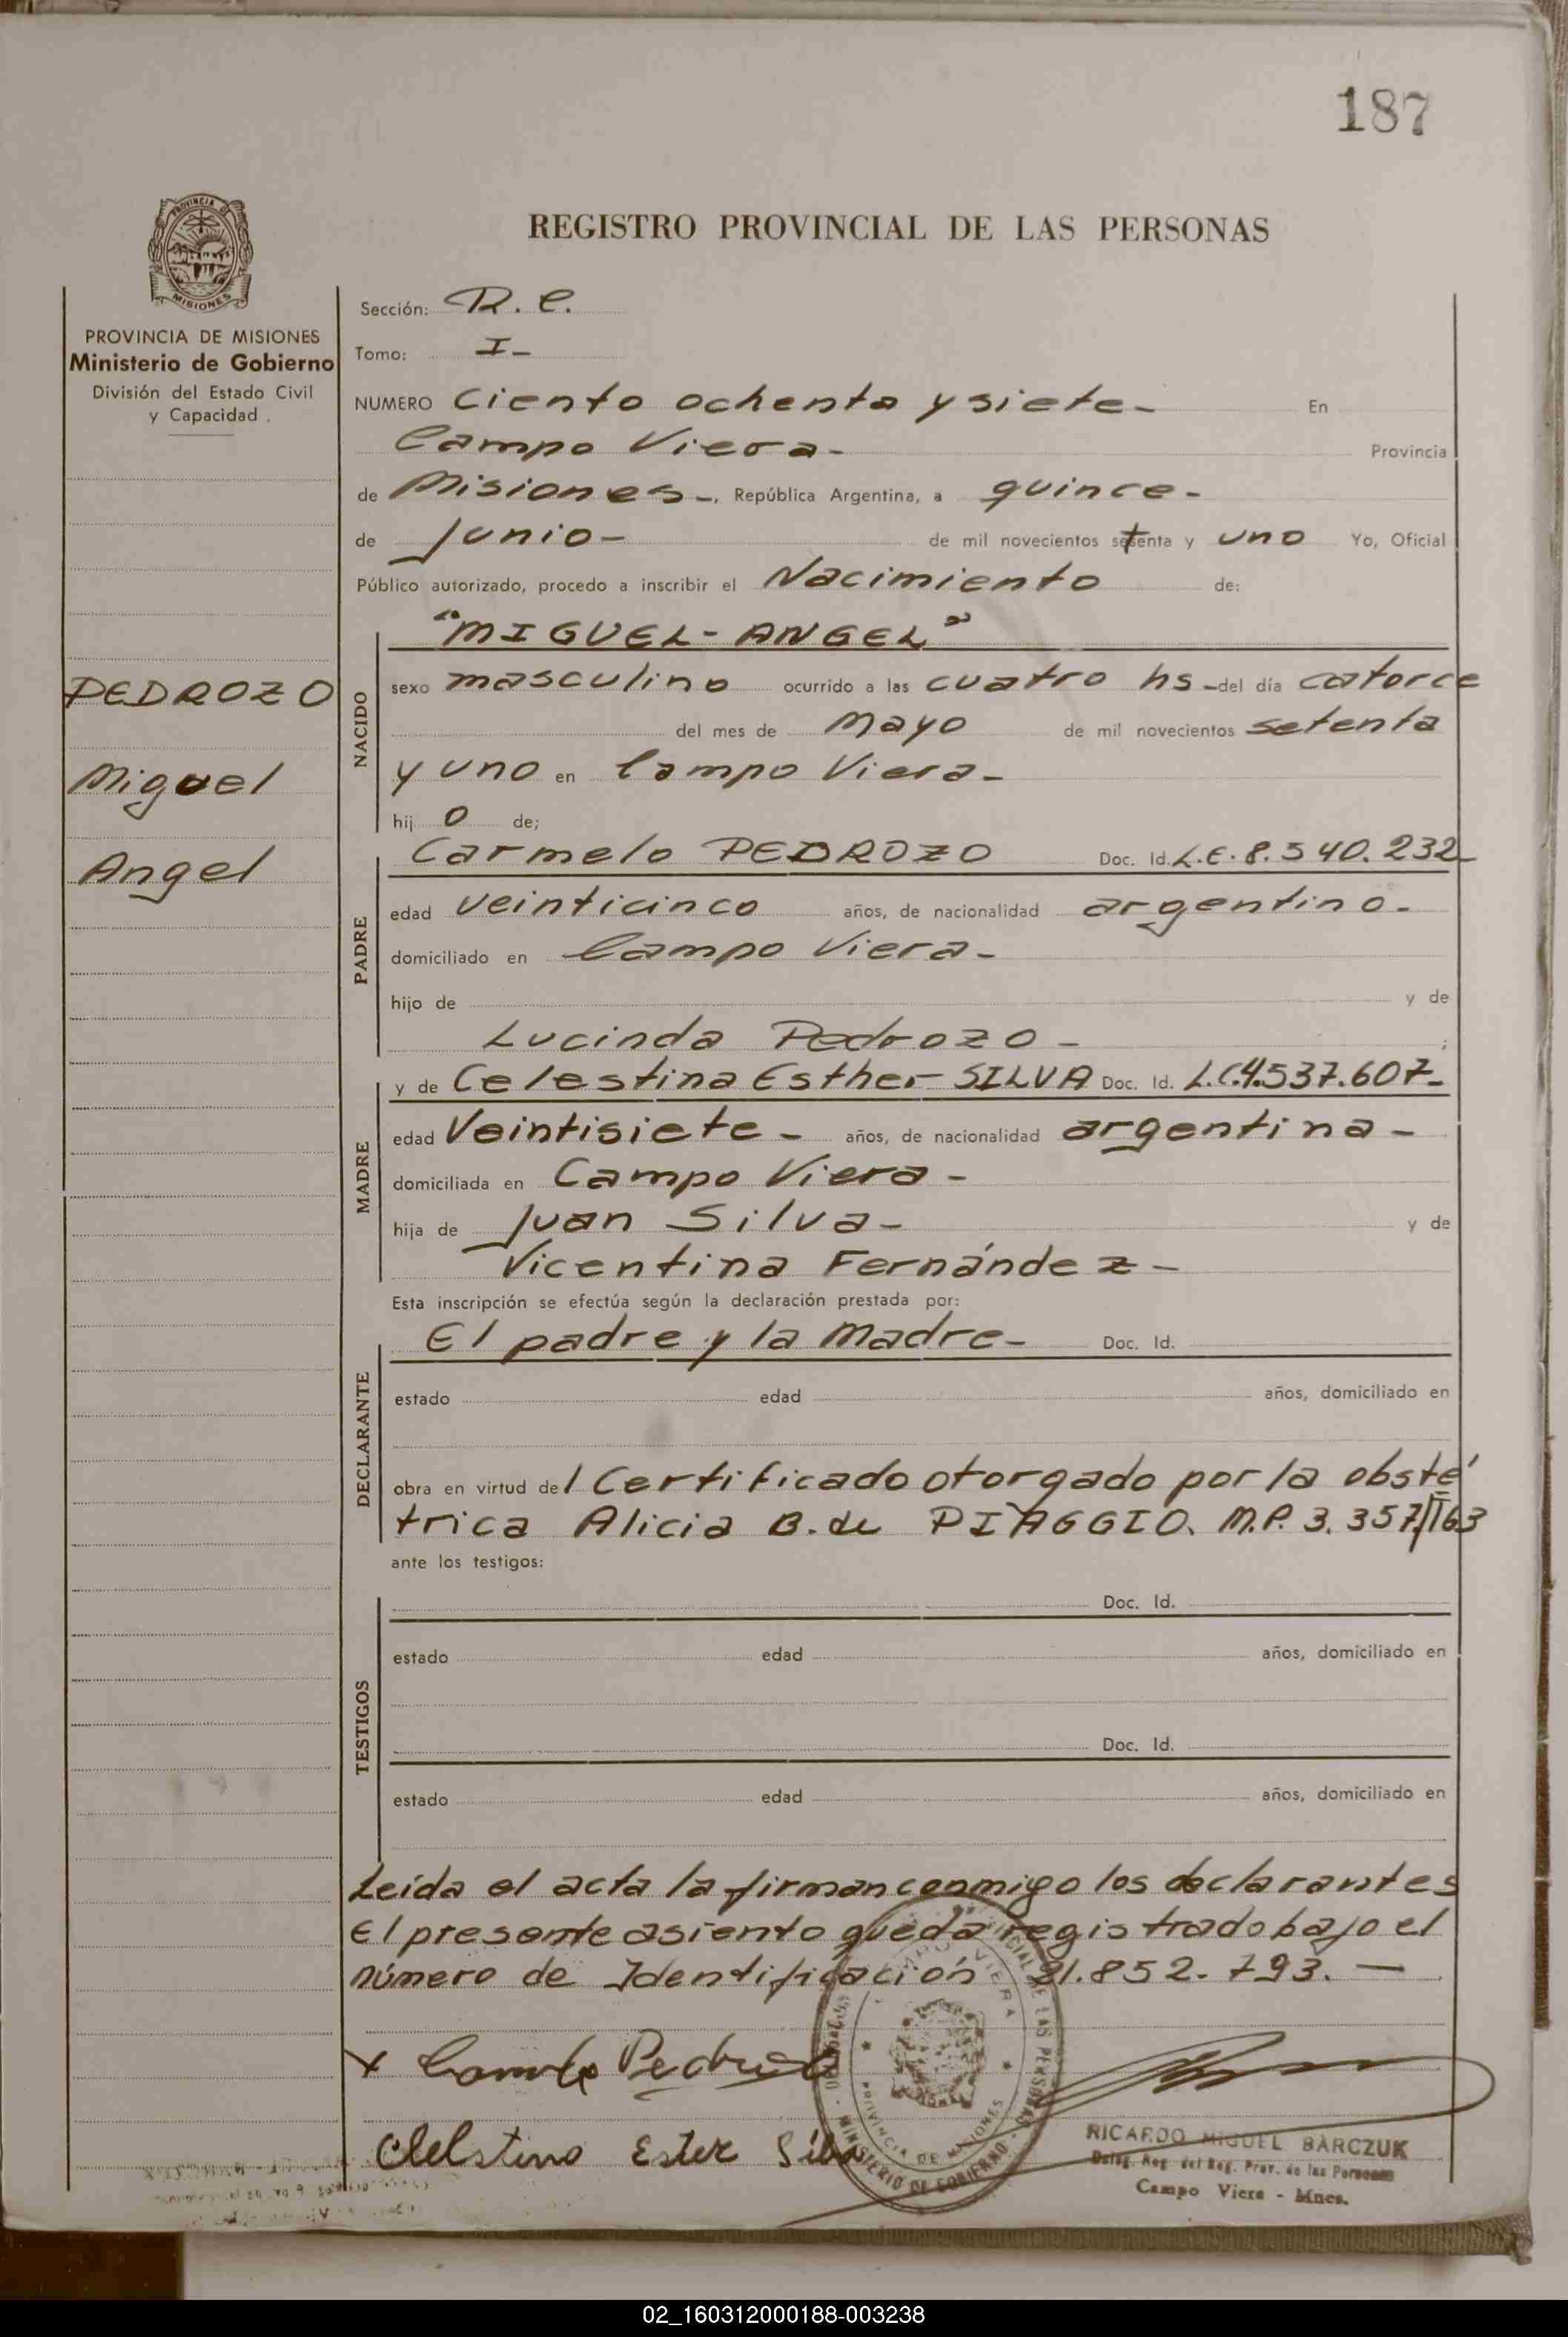 187
REGISTRO PROVINCIAL DE LAS PERSONAS
PROVINCIA DE MISIONES
PROVINCIA DE MISIONES
Ministerio de Gobierno
División del Estado Civil
y Capacidad .
PEDROZO
Miguel
Angel
Sección: R. C.
Tomo: I-
NUMERO Ciento ochenta y siete- En
Campo Viera- Provincia
de Misiones-, República Argentina, a quince-
de Junio- de mil novecientos setenta y uno Yo, Oficial
Público autorizado, procedo a inscribir el Nacimiento de:
"MIGUEL-ANGEL"
NACIDO
sexo masculino ocurrido a las cuatro hs-del día catorce
del mes de Mayo de mil novecientos setenta
y uno en Campo Viera-
hij o de;
Carmelo PEDROZO Doc. Id. L.E. 8.540.232-
PADRE
edad veinticinco años, de nacionalidad argentino-
domiciliado en Campo Viera-
hijo de y de
Lucinda Pedrozo - ;
y de Celestina Esther SILVA Doc. Id. L.C.4.537.607-
MADRE
edad Veintisiete- años, de nacionalidad argentina-
domiciliada en Campo Viera-
hija de Juan Silva- y de
Vicentina Fernández-
Esta inscripción se efectúa según la declaración prestada por:
El padre y la Madre- Doc. Id.
DECLARANTE
estado edad años, domiciliado en
obra en virtud del Certificado otorgado por la obsté
trica Alicia B. de PIAGGIO. M.P. 3.357
ante los testigos:
TESTIGOS
Doc. Id.
estado edad años, domiciliado en
Doc. Id.
estado edad años, domiciliado en
Leída el acta la firman conmigo los declarantes
El presente asiento queda registrado bajo el
número de Identificación 21.852.793.-
Celstina Ester Silva
MINISTERIO DE GOBIERNO
PROVINCIA DE MISIONES
RICARDO MIGUEL BARCZUK
Deleg. Reg. del Reg. Prov. de las Personas
Campo Viera - Mnes.
02_160312000188-003238